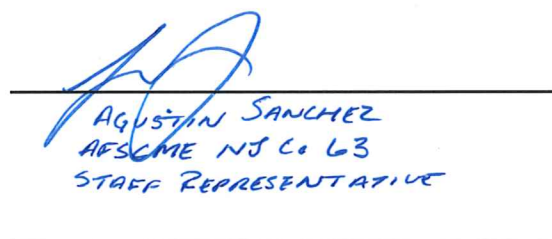 AGUSTIN SANCHEZ
AFSCME NJ Co 63
STAFF REPRESENTATIVE